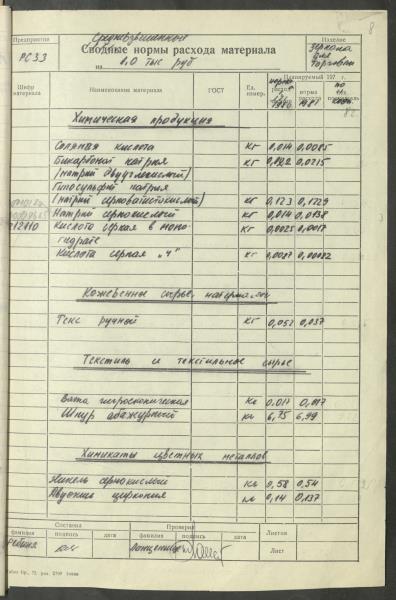 8
Предприятие
Средневзвешенные
Изделие
РСЗЗ
Сводные нормы расхода материала
зеркала
для
торговли
на 1.0 тыс руб
Шифр материала
Наименование материала
ГОСТ
Ед. измер.
Планируемый 197 г.
норма
Химическая продукция
Соляная кислота кг 0,014 0,0085
Бикарбонат натрия кг 0,0215
(натрий двууглекислый)
Гипосульфит натрия
(натрий серноватистокислый) кг 0,123 0,1229
Натрий сернокислый кг 0,014 0,0138
Кислота серная в моно- кг 0,0025 0,0017
гидрате
Кислота серная "Ч" кг 0,0087 0,0082
Кожевенное сырье, материалы
Текс ручной кг 0,052 0,037
Текстиль и текстильное сырье
Вата гигроскопическая кг 0,017 0,017
Шнур абажурный кг 6,75 6,99
Химикаты цветных металлов
Никель сернокислый кг 0,58 0,54
Двуокись циркония кг 0,14 0,137
Составил
Проверил
фамилия подпись дата фамилия подпись дата
Листов
Лист